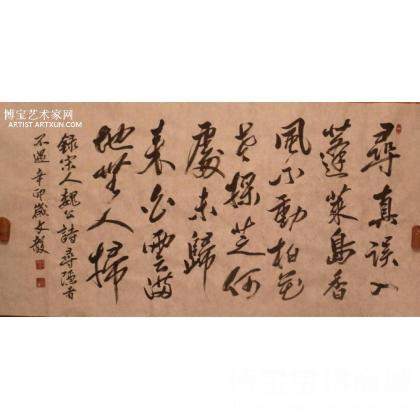 博宝艺术家网
ARTIST.ARTXUN.COM
尋真誤入
蓬萊島香
風不動松花
老採芝何
處未歸
來白雲滿
地無人掃
錄宋人魏公詩尋隱者
不遇辛卯歲文